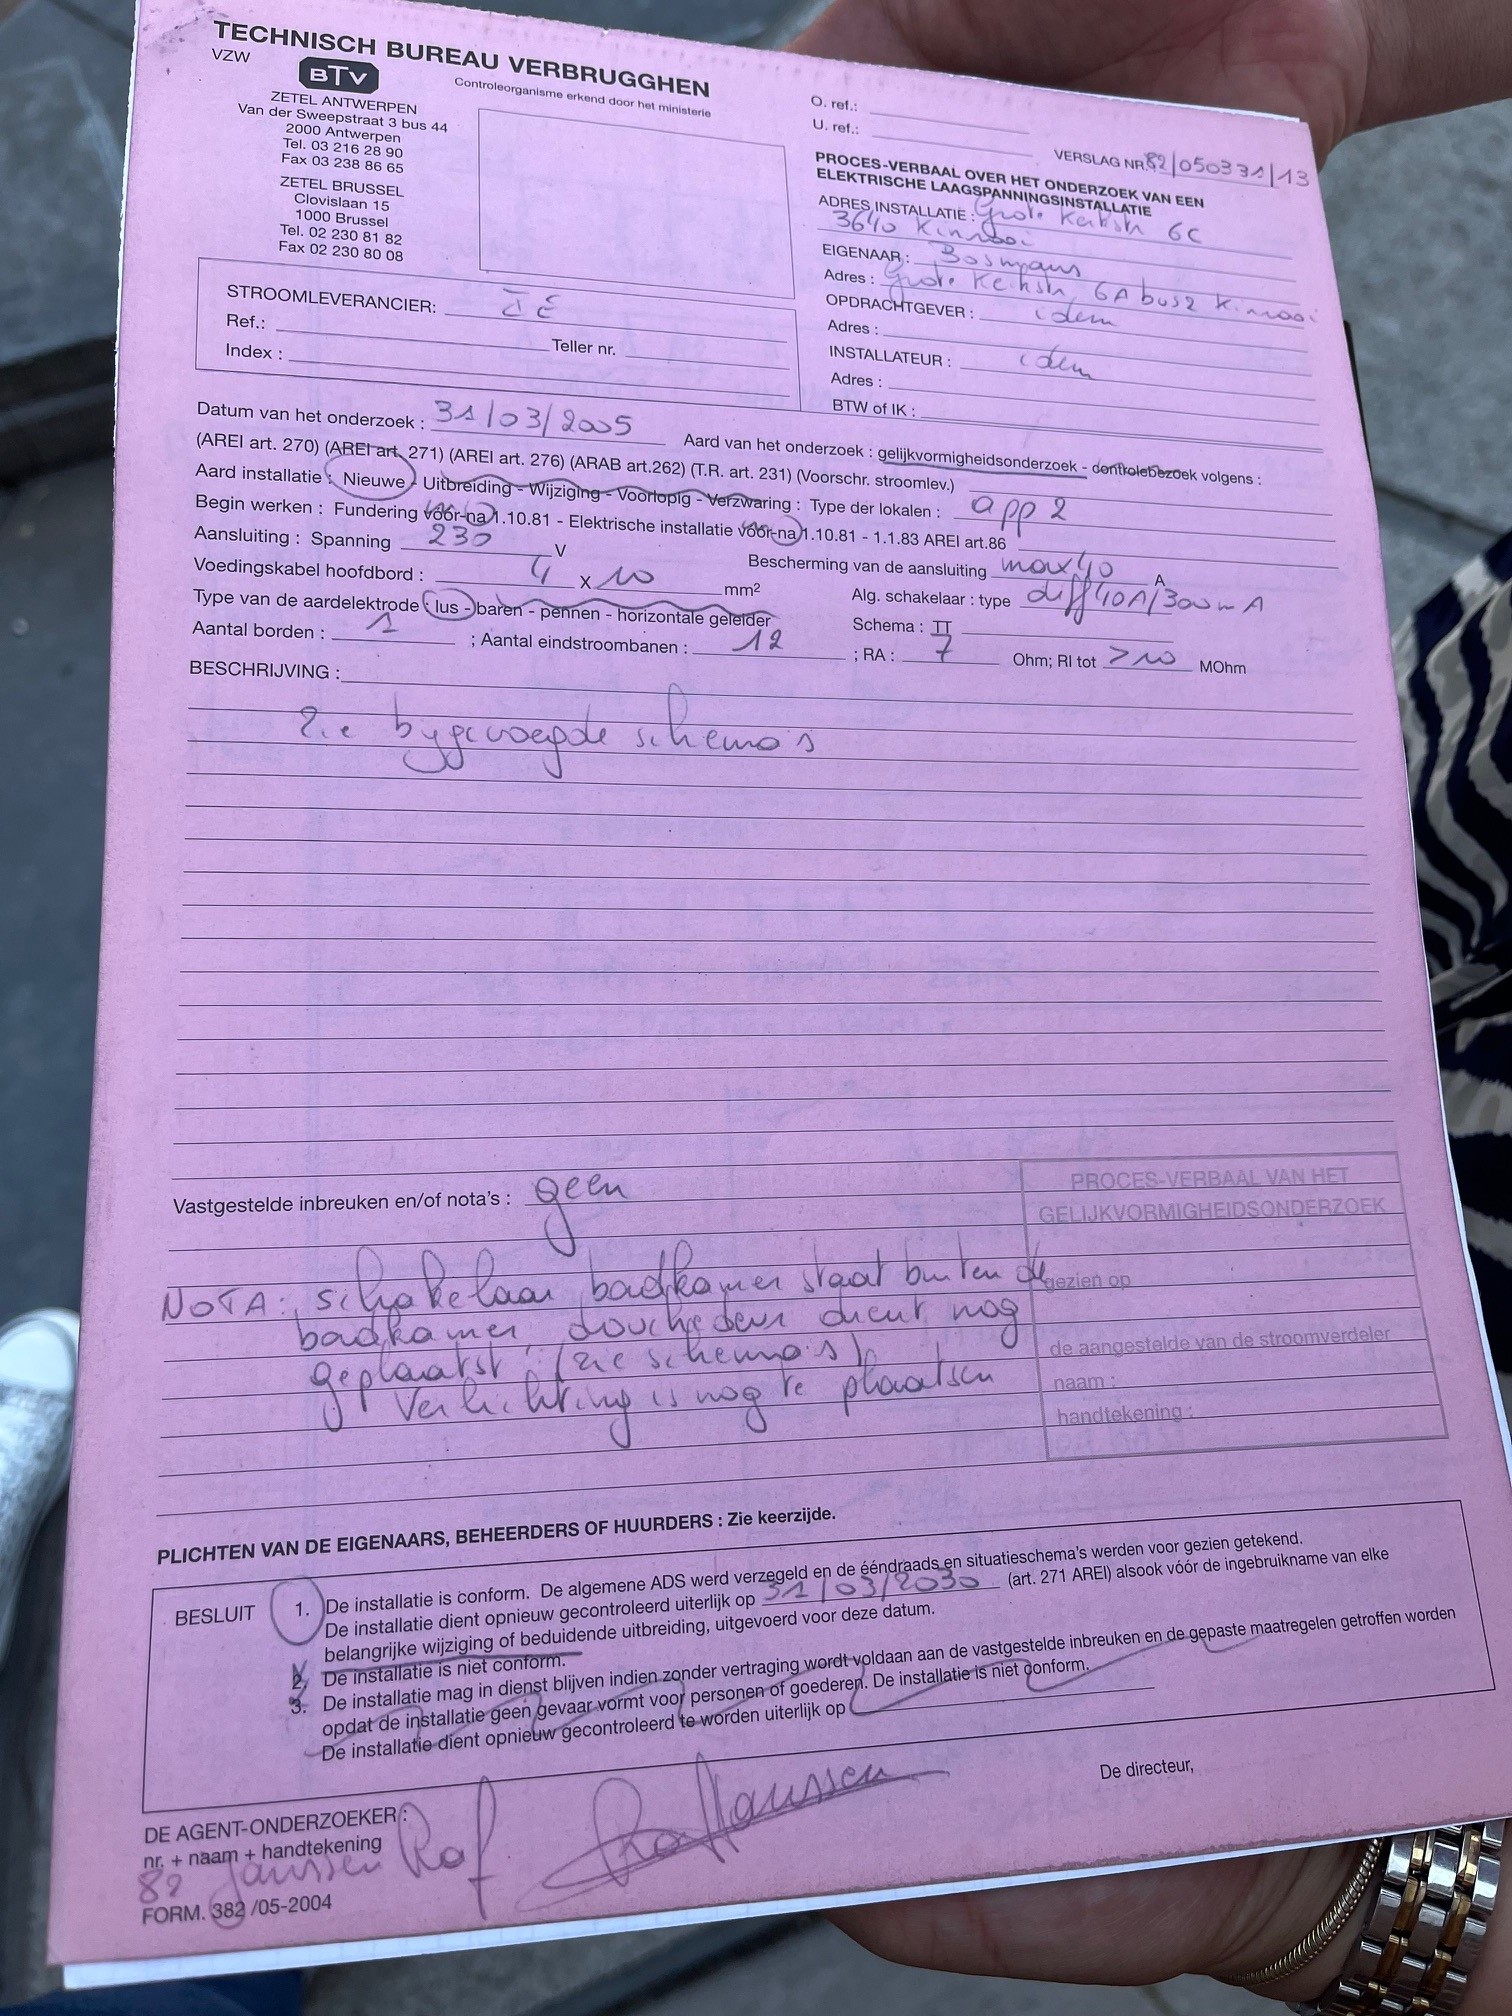 TECHNISCH BUREAU VERBRUGGHEN
VZW
BTV
Controleorganisme erkend door het ministerie
ZETEL ANTWERPEN
Van der Sweepstraat 3 bus 44
2000 Antwerpen
Tel. 03 216 28 90
Fax 03 238 86 65
ZETEL BRUSSEL
Clovislaan 15
1000 Brussel
Tel. 02 230 81 82
Fax 02 230 80 08
O. ref.:
U. ref.:
VERSLAG NR. 82/050331/13
PROCES-VERBAAL OVER HET ONDERZOEK VAN EEN
ELEKTRISCHE LAAGSPANNINGSINSTALLATIE
ADRES INSTALLATIE : Grote Kerkstr 6C
3640 Kinrooi
EIGENAAR : Bosmans
Adres : Grote Kerkstr 6A bus2 Kinrooi
OPDRACHTGEVER : idem
Adres :
INSTALLATEUR : idem
Adres :
BTW of IK :
STROOMLEVERANCIER:
Ref.: Teller nr.
Index :
Datum van het onderzoek : 31/03/2005 Aard van het onderzoek : gelijkvormigheidsonderzoek - controlebezoek volgens :
(AREI art. 270) (AREI art. 271) (AREI art. 276) (ARAB art.262) (T.R. art. 231) (Voorschr. stroomlev.)
Aard installatie : Nieuwe - Uitbreiding - Wijziging - Voorlopig - Verzwaring : Type der lokalen : app 2
Begin werken : Fundering vóór-na 1.10.81 - Elektrische installatie vóór-na 1.10.81 - 1.1.83 AREI art.86
Aansluiting : Spanning 230 V Bescherming van de aansluiting max 40 A
Voedingskabel hoofdbord : 4 x 10 mm2 Alg. schakelaar : type diff 40A/300mA
Type van de aardelektrode : lus - baren - pennen - horizontale geleider Schema : TT
Aantal borden : 1 ; Aantal eindstroombanen : 12 ; RA : 7 Ohm; RI tot >10 MOhm
BESCHRIJVING :
zie bijgevoegde schema's
Vastgestelde inbreuken en/of nota's : geen
NOTA: schakelaar badkamer staat buiten de
badkamer, douchedeur dient nog
geplaatst (zie schema's)
Verlichting is nog te plaatsen
PROCES-VERBAAL VAN HET
GELIJKVORMIGHEIDSONDERZOEK
gezien op
de aangestelde van de stroomverdeler
naam :
handtekening :
PLICHTEN VAN DE EIGENAARS, BEHEERDERS OF HUURDERS : Zie keerzijde.
BESLUIT 1. De installatie is conform. De algemene ADS werd verzegeld en de ééndraads en situatieschema's werden voor gezien getekend.
De installatie dient opnieuw gecontroleerd uiterlijk op 31/03/2030 (art. 271 AREI) alsook vóór de ingebruikname van elke
belangrijke wijziging of beduidende uitbreiding, uitgevoerd voor deze datum.
2. De installatie is niet conform.
3. De installatie mag in dienst blijven indien zonder vertraging wordt voldaan aan de vastgestelde inbreuken en de gepaste maatregelen getroffen worden
opdat de installatie geen gevaar vormt voor personen of goederen. De installatie is niet conform.
De installatie dient opnieuw gecontroleerd te worden uiterlijk op
De directeur,
DE AGENT-ONDERZOEKER :
nr. + naam + handtekening
82 Janssen Raf
FORM. 382 /05-2004